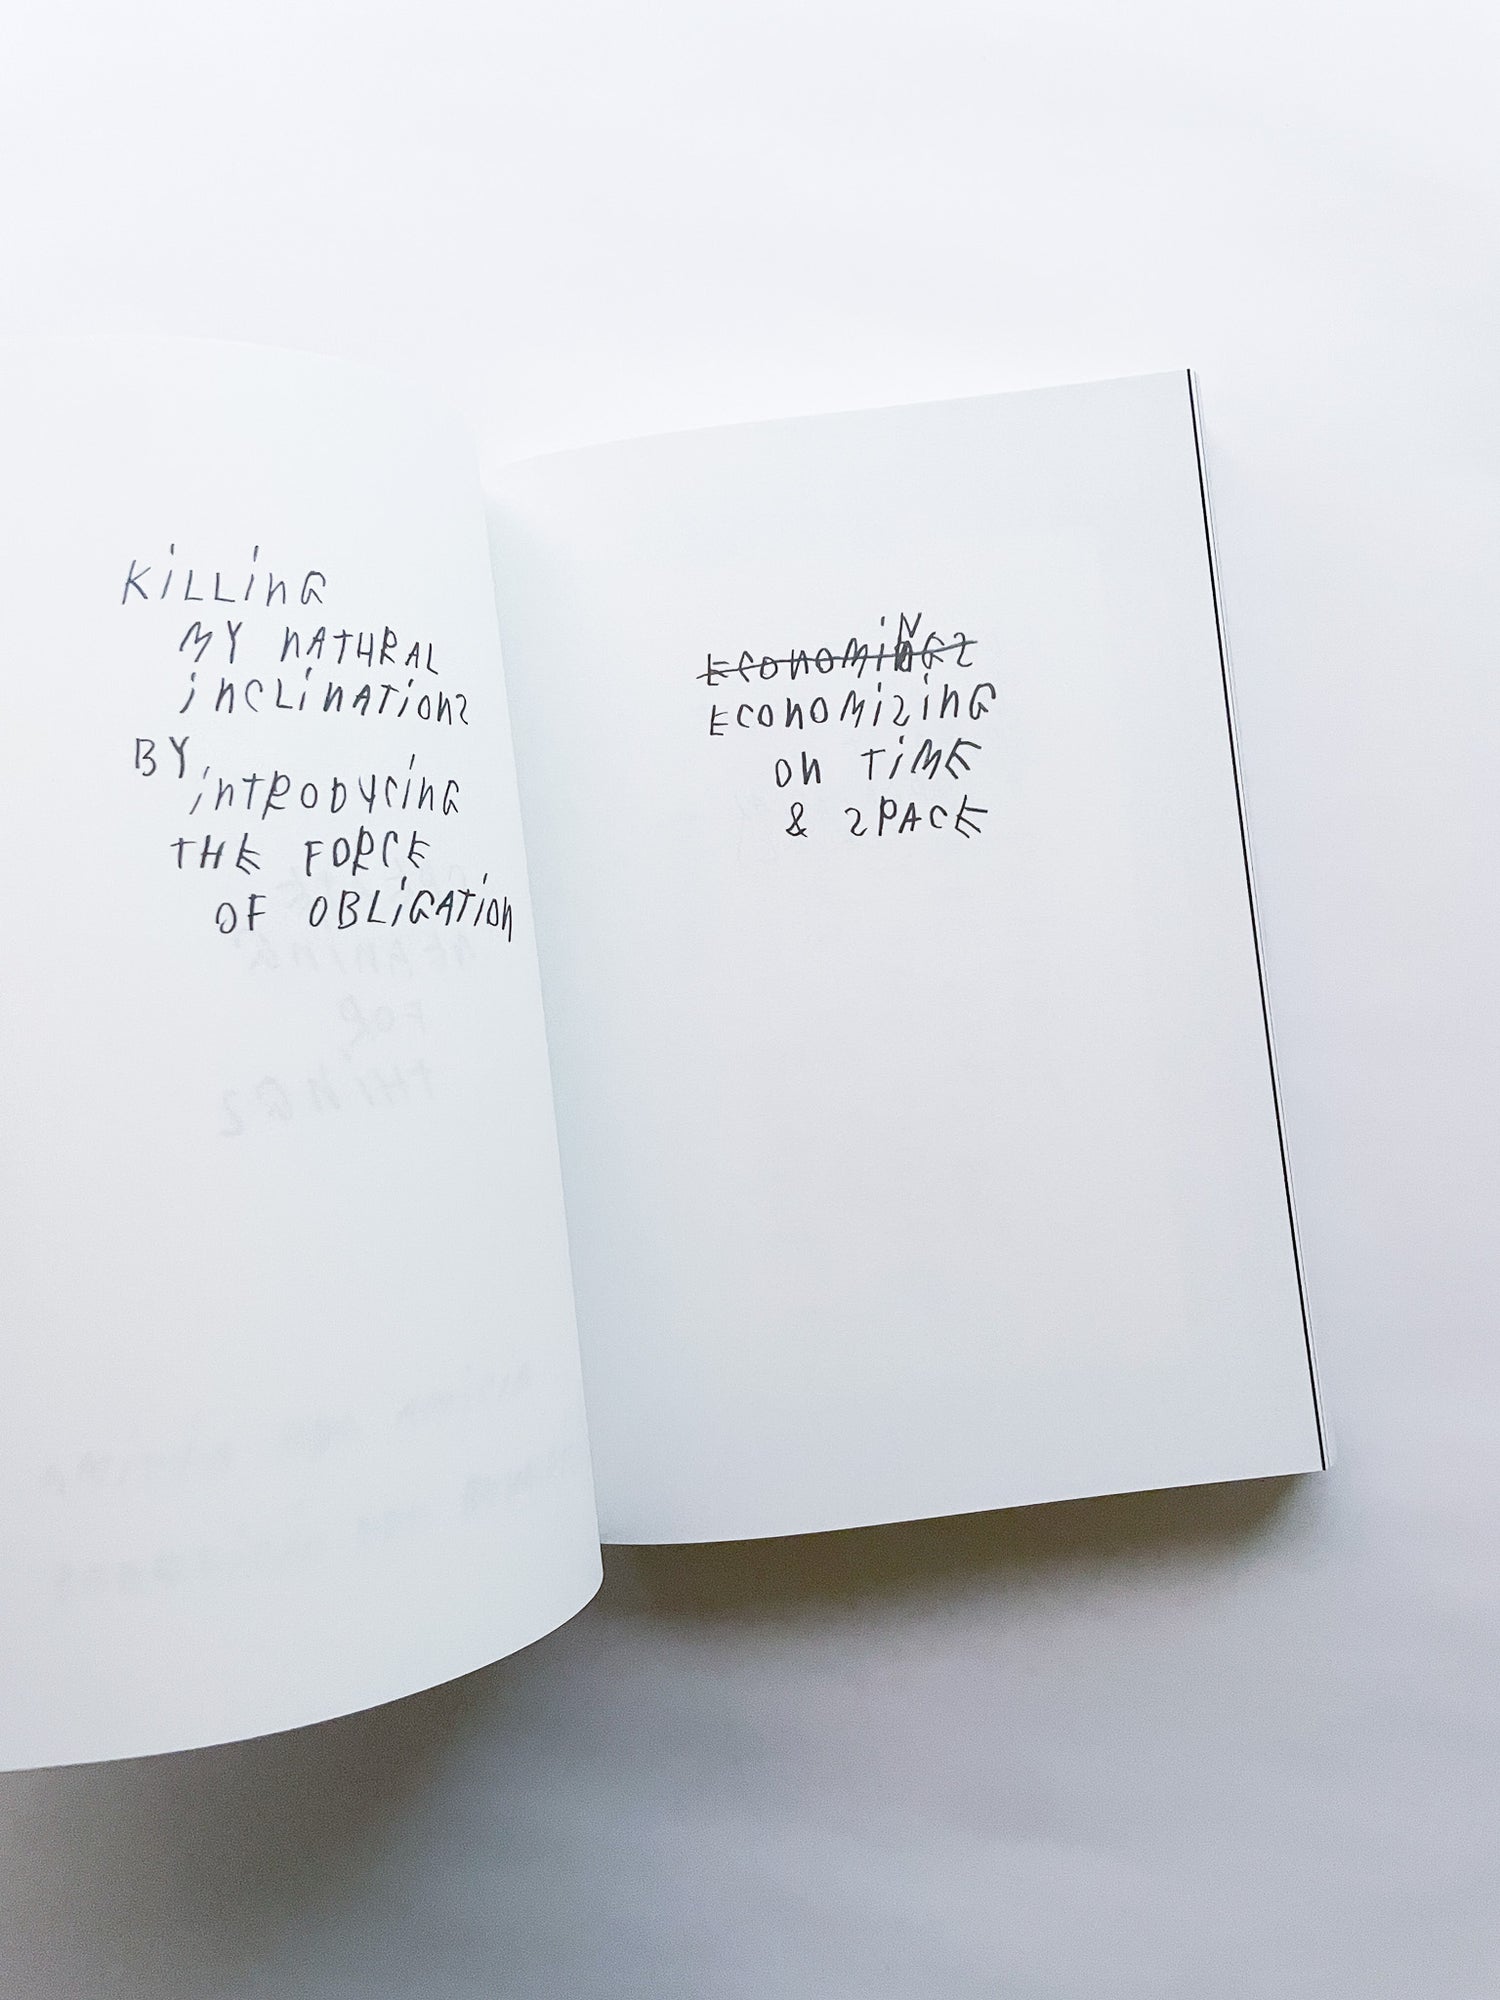 KiLLinG
MY nATURAL
inCLinATions
BY
inTRODUCinG
THE FORCE
OF OBLiGATion
EConoMiNGs
EConoMizinG
on TiME
& SPACE
FOR
THinGs